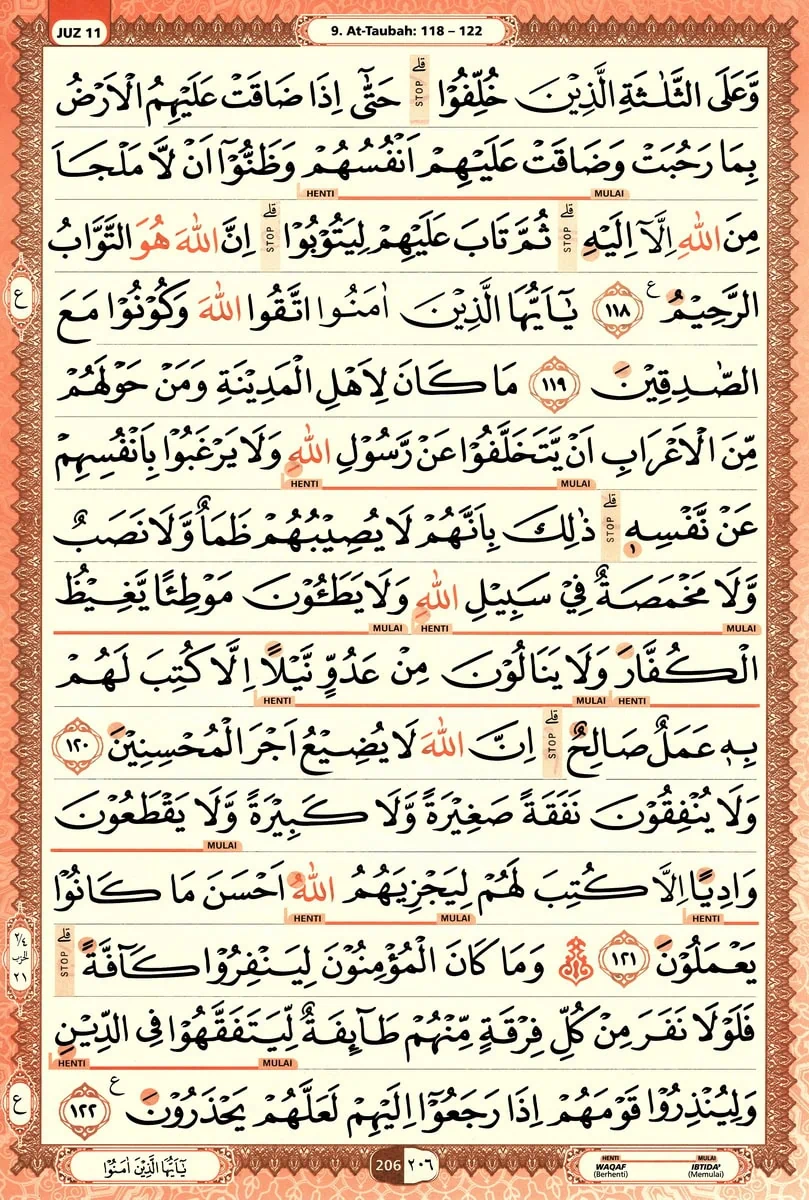 JUZ 11
9. At-Taubah: 118 – 122
وَّعَلَى الثَّلٰثَةِ الَّذِيْنَ خُلِّفُوْا ۗ قلى STOP حَتّٰٓى اِذَا ضَاقَتْ عَلَيْهِمُ الْاَرْضُ
بِمَا رَحُبَتْ وَضَاقَتْ عَلَيْهِمْ اَنْفُسُهُمْ وَظَنُّوْٓا اَنْ لَّا مَلْجَاَ
HENTI MULAI
مِنَ اللّٰهِ اِلَّآ اِلَيْهِ قلى STOP ثُمَّ تَابَ عَلَيْهِمْ لِيَتُوْبُوْا قلى STOP اِنَّ اللّٰهَ هُوَ التَّوَّابُ
الرَّحِيْمُ ࣖ ١١٨ يٰٓاَيُّهَا الَّذِيْنَ اٰمَنُوا اتَّقُوا اللّٰهَ وَكُوْنُوْا مَعَ
ع
الصّٰدِقِيْنَ ١١٩ مَا كَانَ لِاَهْلِ الْمَدِيْنَةِ وَمَنْ حَوْلَهُمْ
مِّنَ الْاَعْرَابِ اَنْ يَّتَخَلَّفُوْا عَنْ رَّسُوْلِ اللّٰهِ وَلَا يَرْغَبُوْا بِاَنْفُسِهِمْ
HENTI MULAI
عَنْ نَّفْسِهٖ ١ قلى STOP ذٰلِكَ بِاَنَّهُمْ لَا يُصِيْبُهُمْ ظَمَاٌ وَّلَا نَصَبٌ
وَّلَا مَخْمَصَةٌ فِيْ سَبِيْلِ اللّٰهِ وَلَا يَطَـُٔوْنَ مَوْطِئًا يَّغِيْظُ
MULAI HENTI MULAI
الْكُفَّارَ وَلَا يَنَالُوْنَ مِنْ عَدُوٍّ نَّيْلًا اِلَّا كُتِبَ لَهُمْ
HENTI MULAI HENTI
بِهٖ عَمَلٌ صَالِحٌ قلى STOP اِنَّ اللّٰهَ لَا يُضِيْعُ اَجْرَ الْمُحْسِنِيْنَ ١٢٠
وَلَا يُنْفِقُوْنَ نَفَقَةً صَغِيْرَةً وَّلَا كَبِيْرَةً وَّلَا يَقْطَعُوْنَ
MULAI
وَادِيًا اِلَّا كُتِبَ لَهُمْ لِيَجْزِيَهُمُ اللّٰهُ اَحْسَنَ مَا كَانُوْا
HENTI MULAI HENTI
يَعْمَلُوْنَ ١٢١ وَمَا كَانَ الْمُؤْمِنُوْنَ لِيَنْفِرُوْا كَاۤفَّةً قلى STOP
٢/٤
الحزب
٢١
فَلَوْلَا نَفَرَ مِنْ كُلِّ فِرْقَةٍ مِّنْهُمْ طَاۤىِٕفَةٌ لِّيَتَفَقَّهُوْا فِى الدِّيْنِ
HENTI MULAI
وَلِيُنْذِرُوْا قَوْمَهُمْ اِذَا رَجَعُوْٓا اِلَيْهِمْ لَعَلَّهُمْ يَحْذَرُوْنَ ࣖ ١٢٢
ع
يٰٓاَيُّهَا الَّذِيْنَ اٰمَنُوْا
206 ٢٠٦
HENTI MULAI
WAQAF IBTIDA'
(Berhenti) (Memulai)